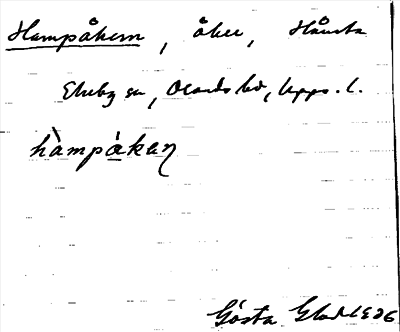 Hampåkern, åker, Hånsta
Ekeby sn, Oland hd, Upps. l.
hàmpåkaɳ
Gösta 1936